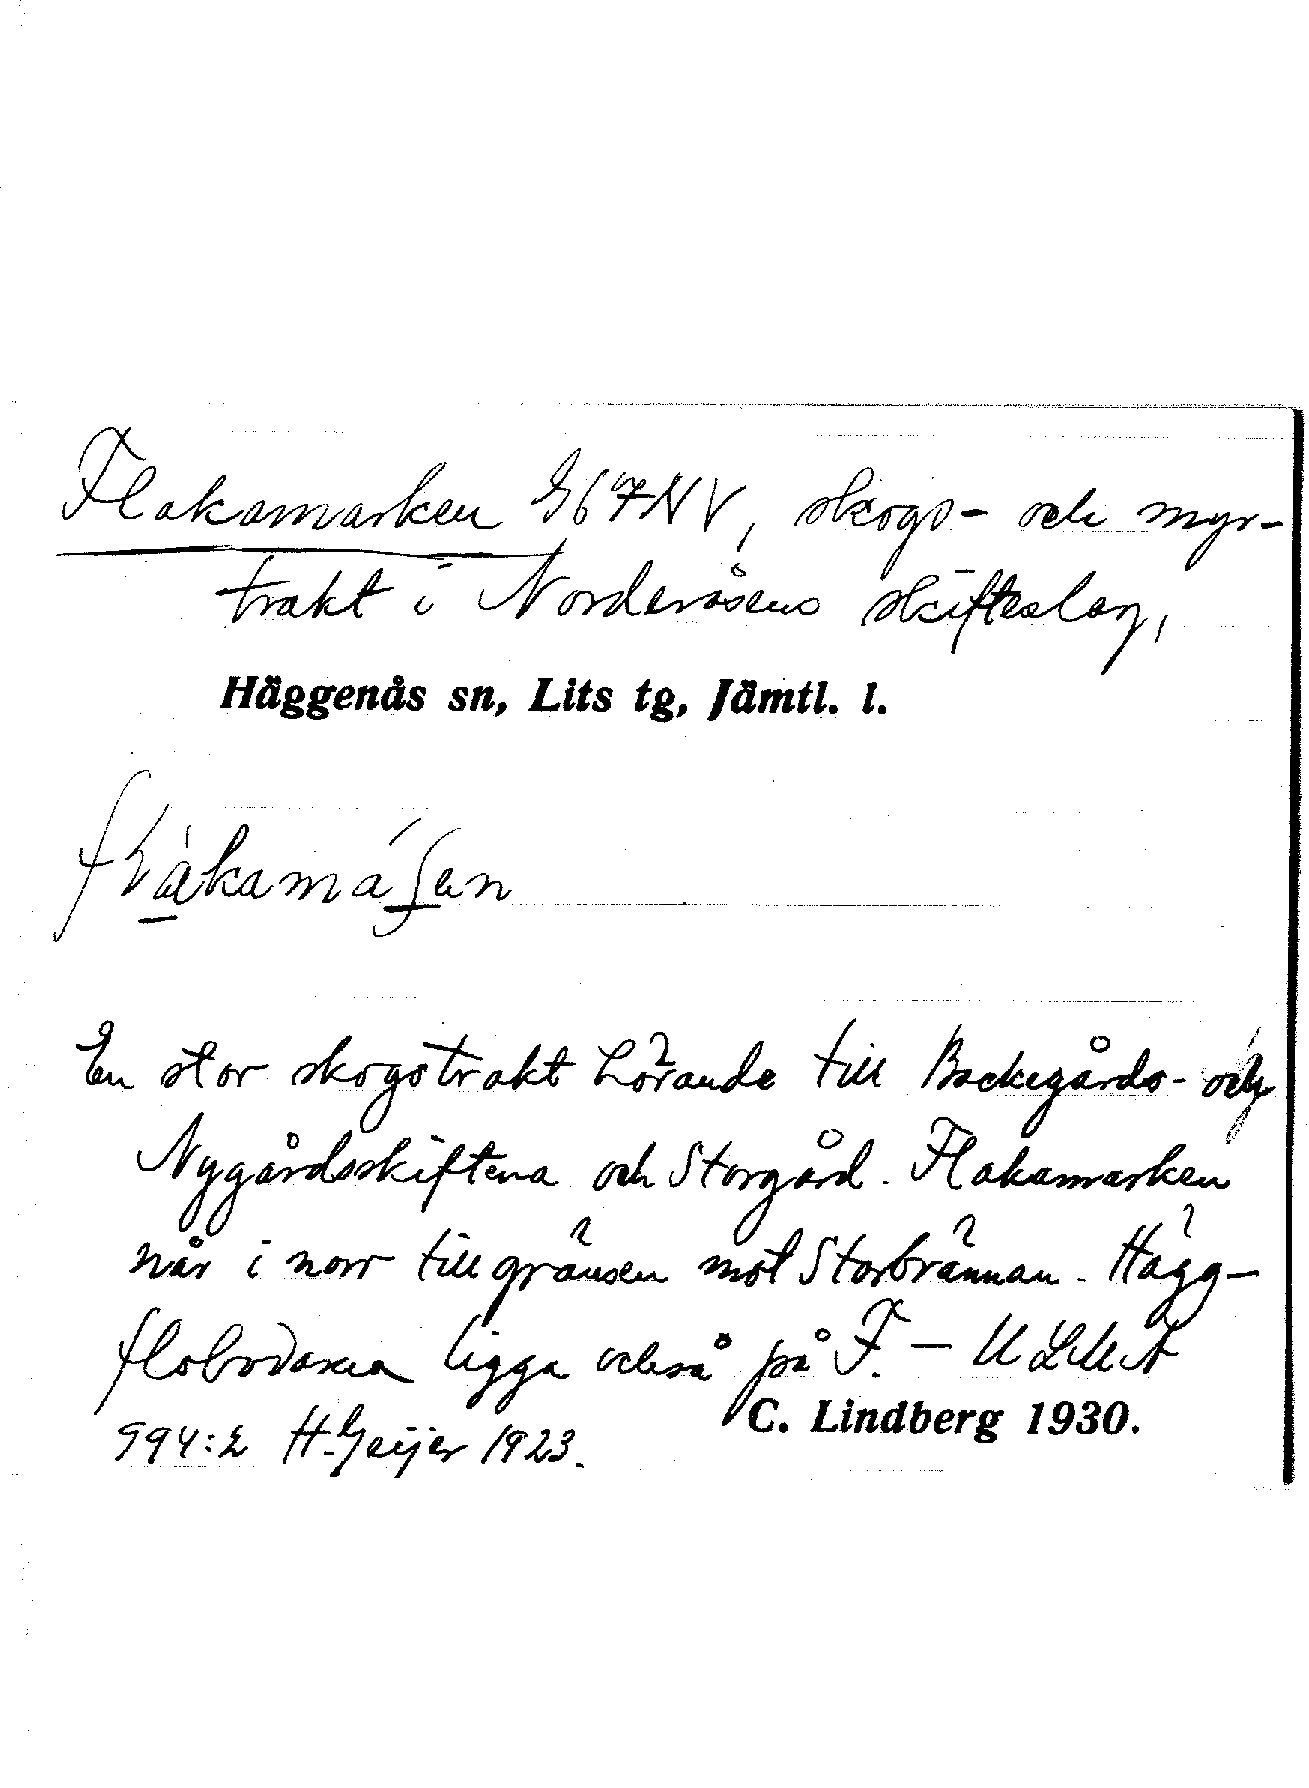 Flakamarken 967NV, skogs- och myr-
trakt i Norderåsens skifteslag,
Häggenås sn, Lits tg, Jämtl. l.
En stor skogstrakt hörande till Backegårds- och
Nygårdsskiftena och Storgård. Flakamarken
når i norr till gränsen mot Storbrännan. Hägg-
flobodarna ligga också på F. — ULMA
994:2 H. Geijer 1923.
C. Lindberg 1930.